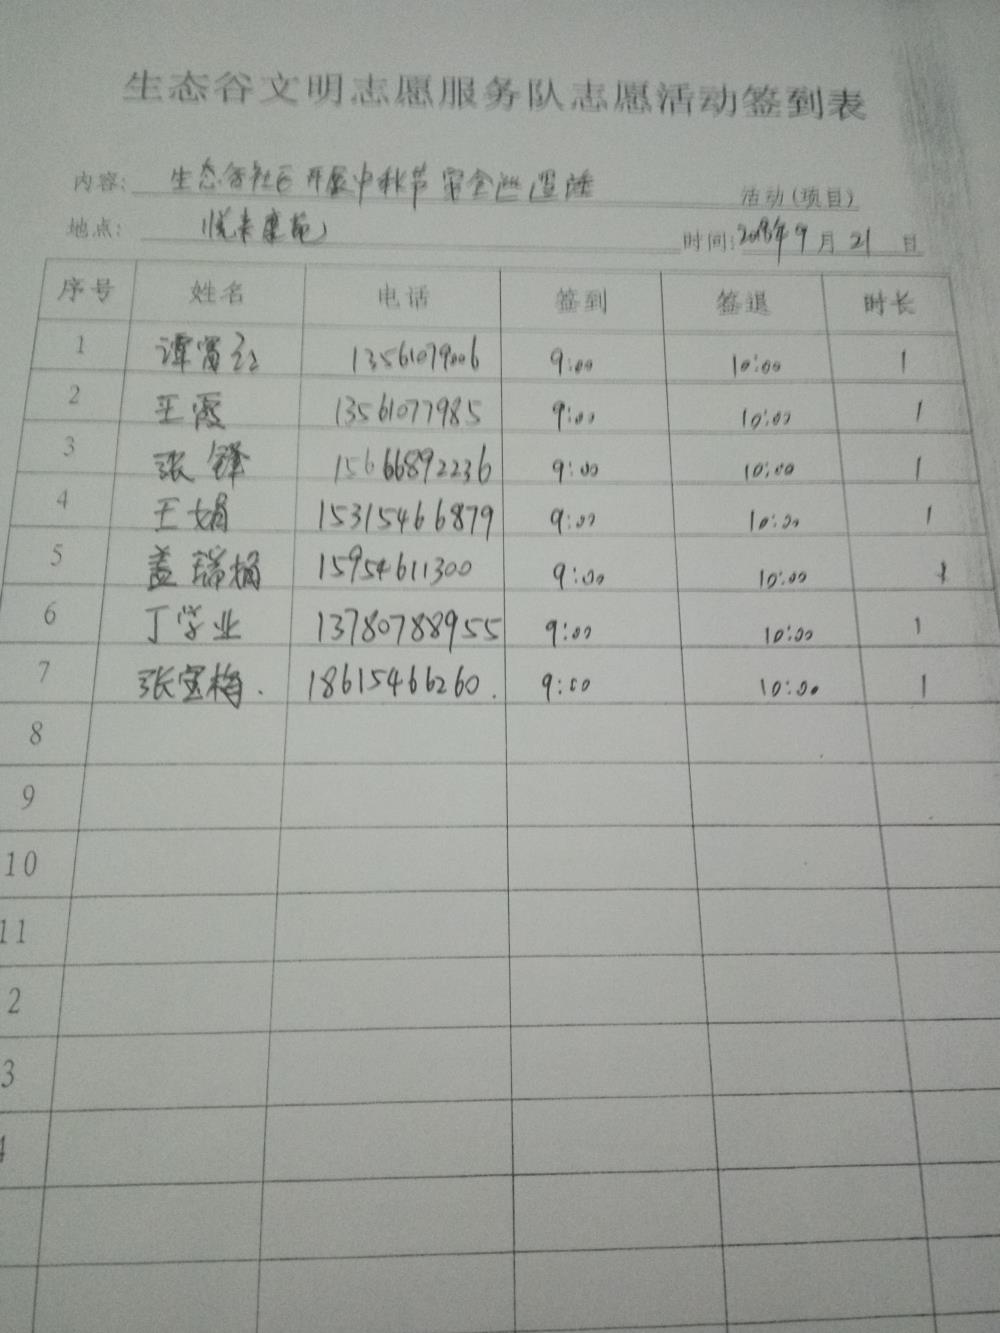 生态谷文明志愿服务队志愿活动签到表
内容: 生态谷社区开展中秋节安全巡逻 活动(项目)
地点: 悦来康苑 时间: 2018年9月21日
序号 姓名 电话 签到 签退 时长
1 谭 13561079006 9:00 10:00 1
2 王霞 13561077985 9:00 10:00 1
3 张锋 15666892236 9:00 10:00 1
4 王娟 15315466879 9:00 10:00 1
5 盖瑞娟 15954611300 9:00 10:00 1
6 丁学业 13780788955 9:00 10:00 1
7 张宝梅. 18615466260. 9:00 10:00 1
8
9
10
11
2
3
4